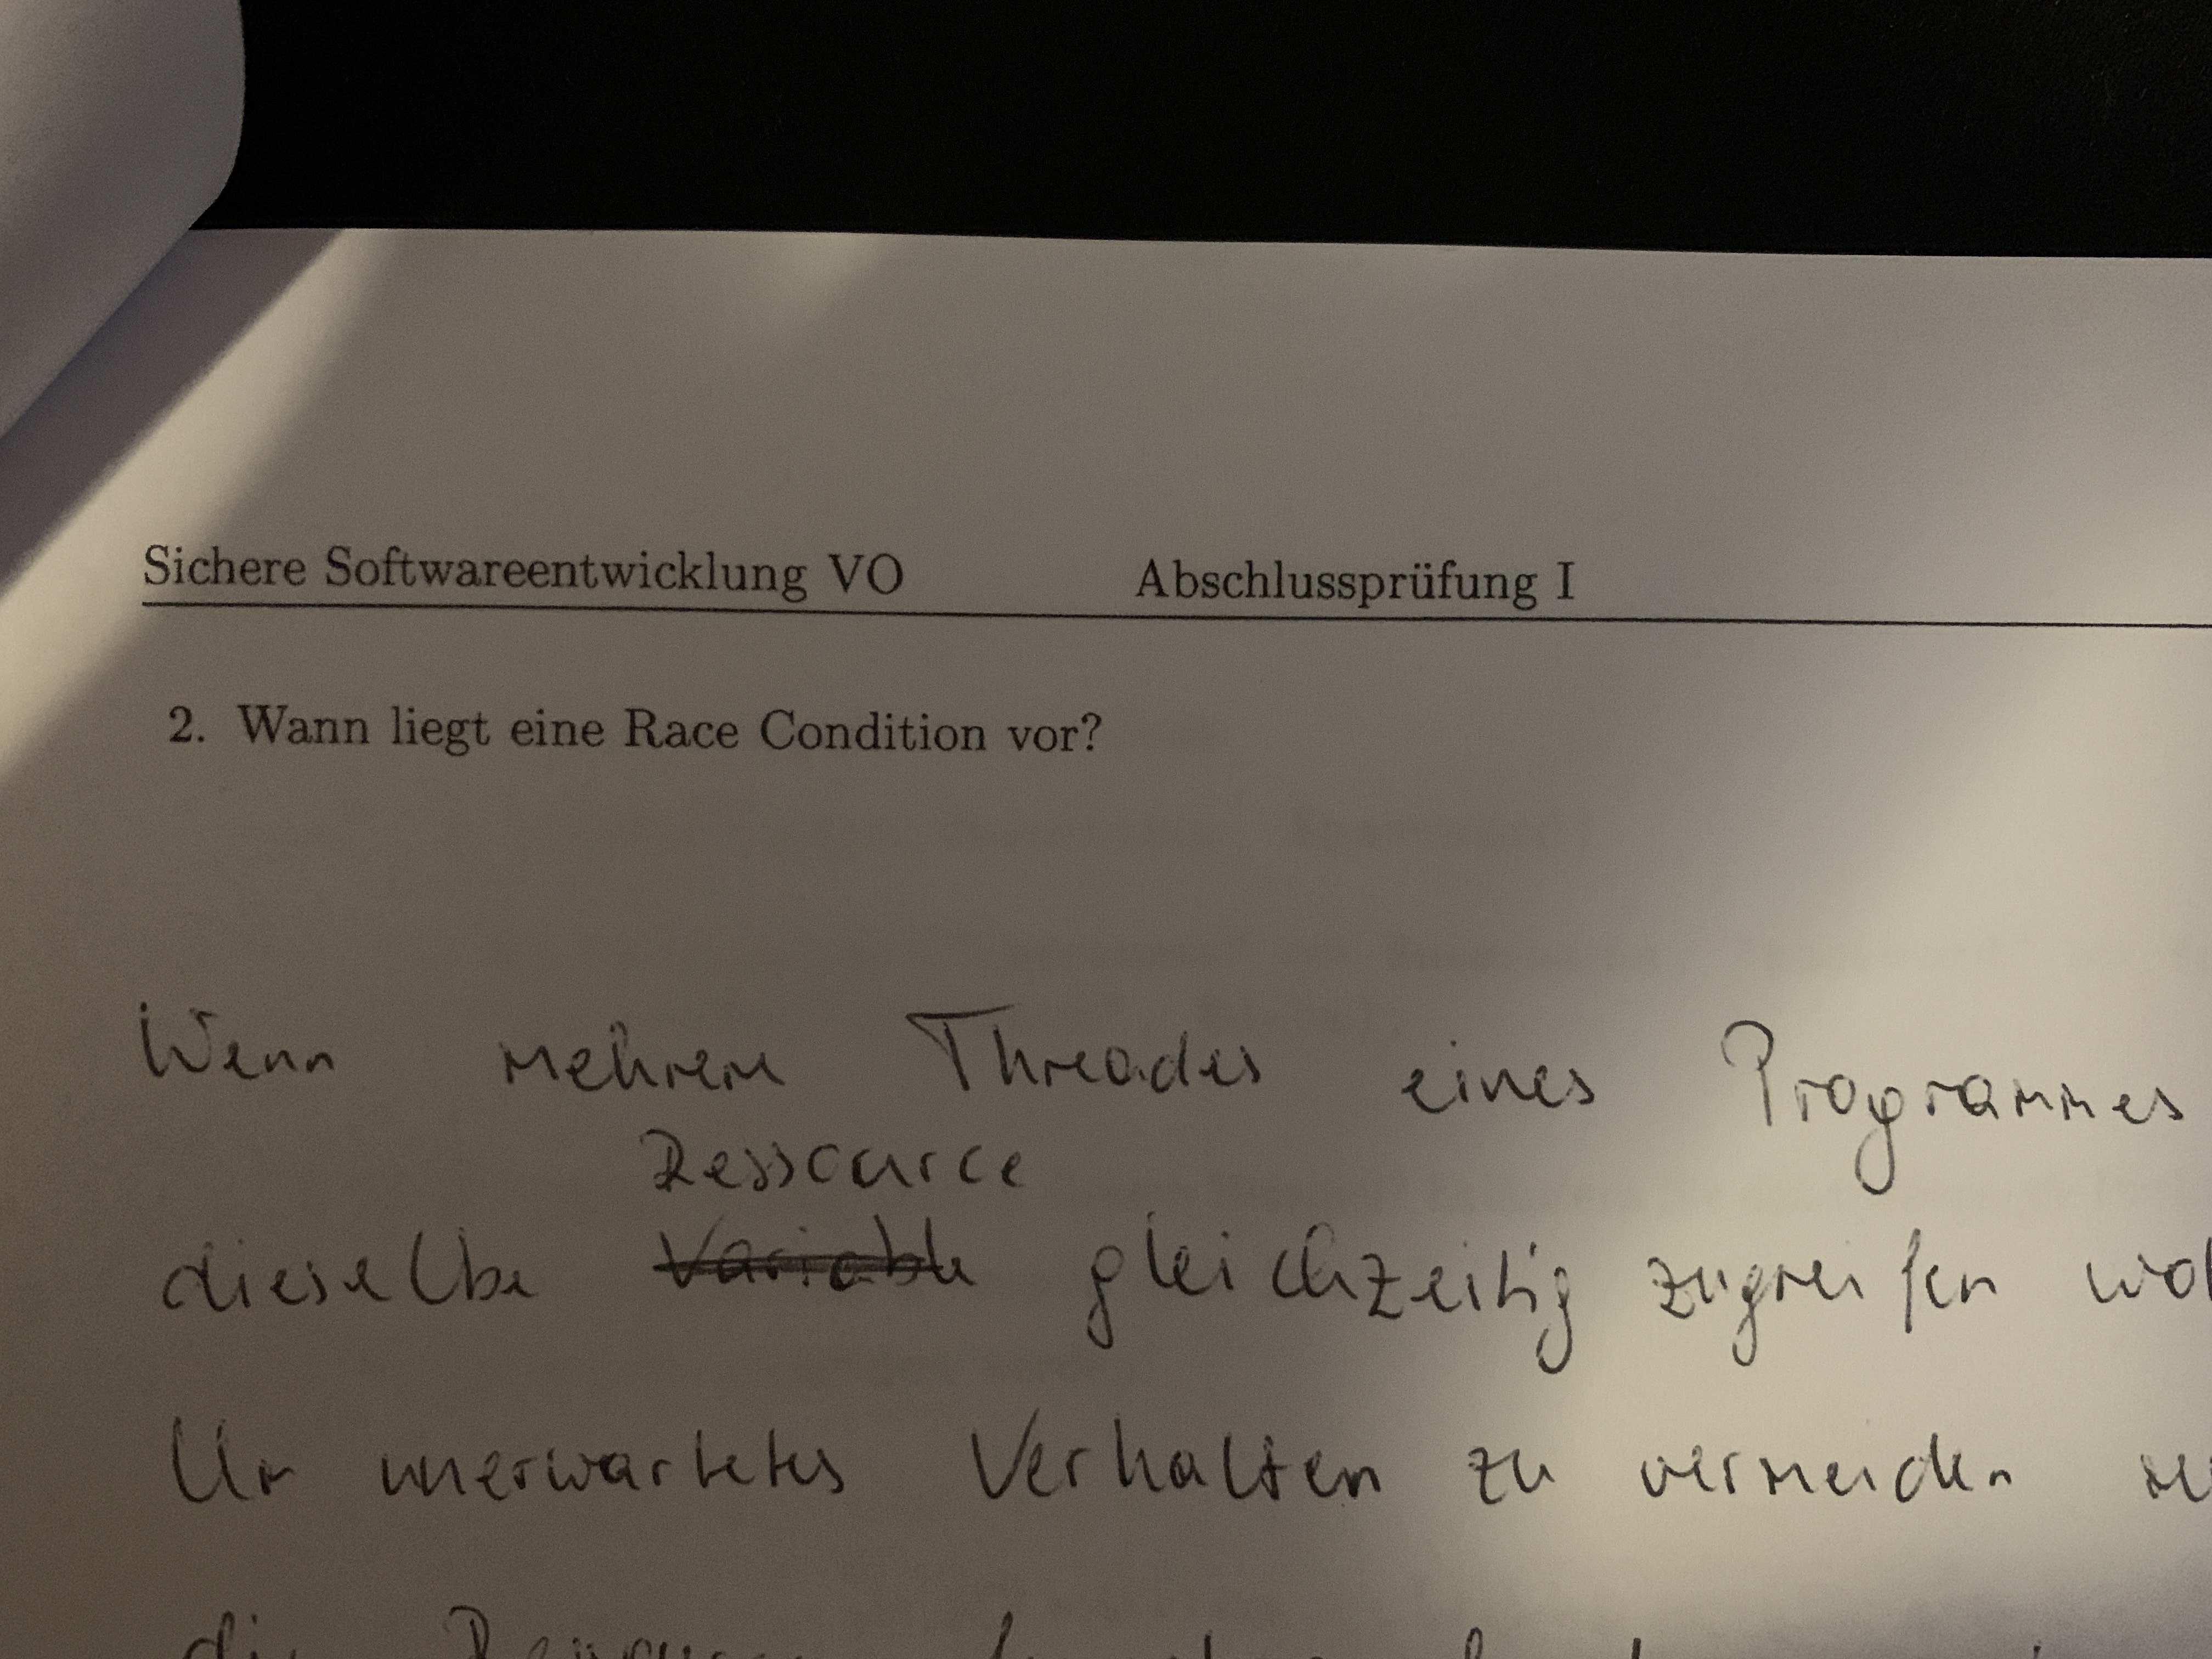 Sichere Softwareentwicklung VO Abschlussprüfung I
2. Wann liegt eine Race Condition vor?
Wenn mehrere Threades eines Programmes
Ressource
dieselbe Variable gleichzeitig zugreifen
Um unerwartetes Verhalten zu vermeiden
die